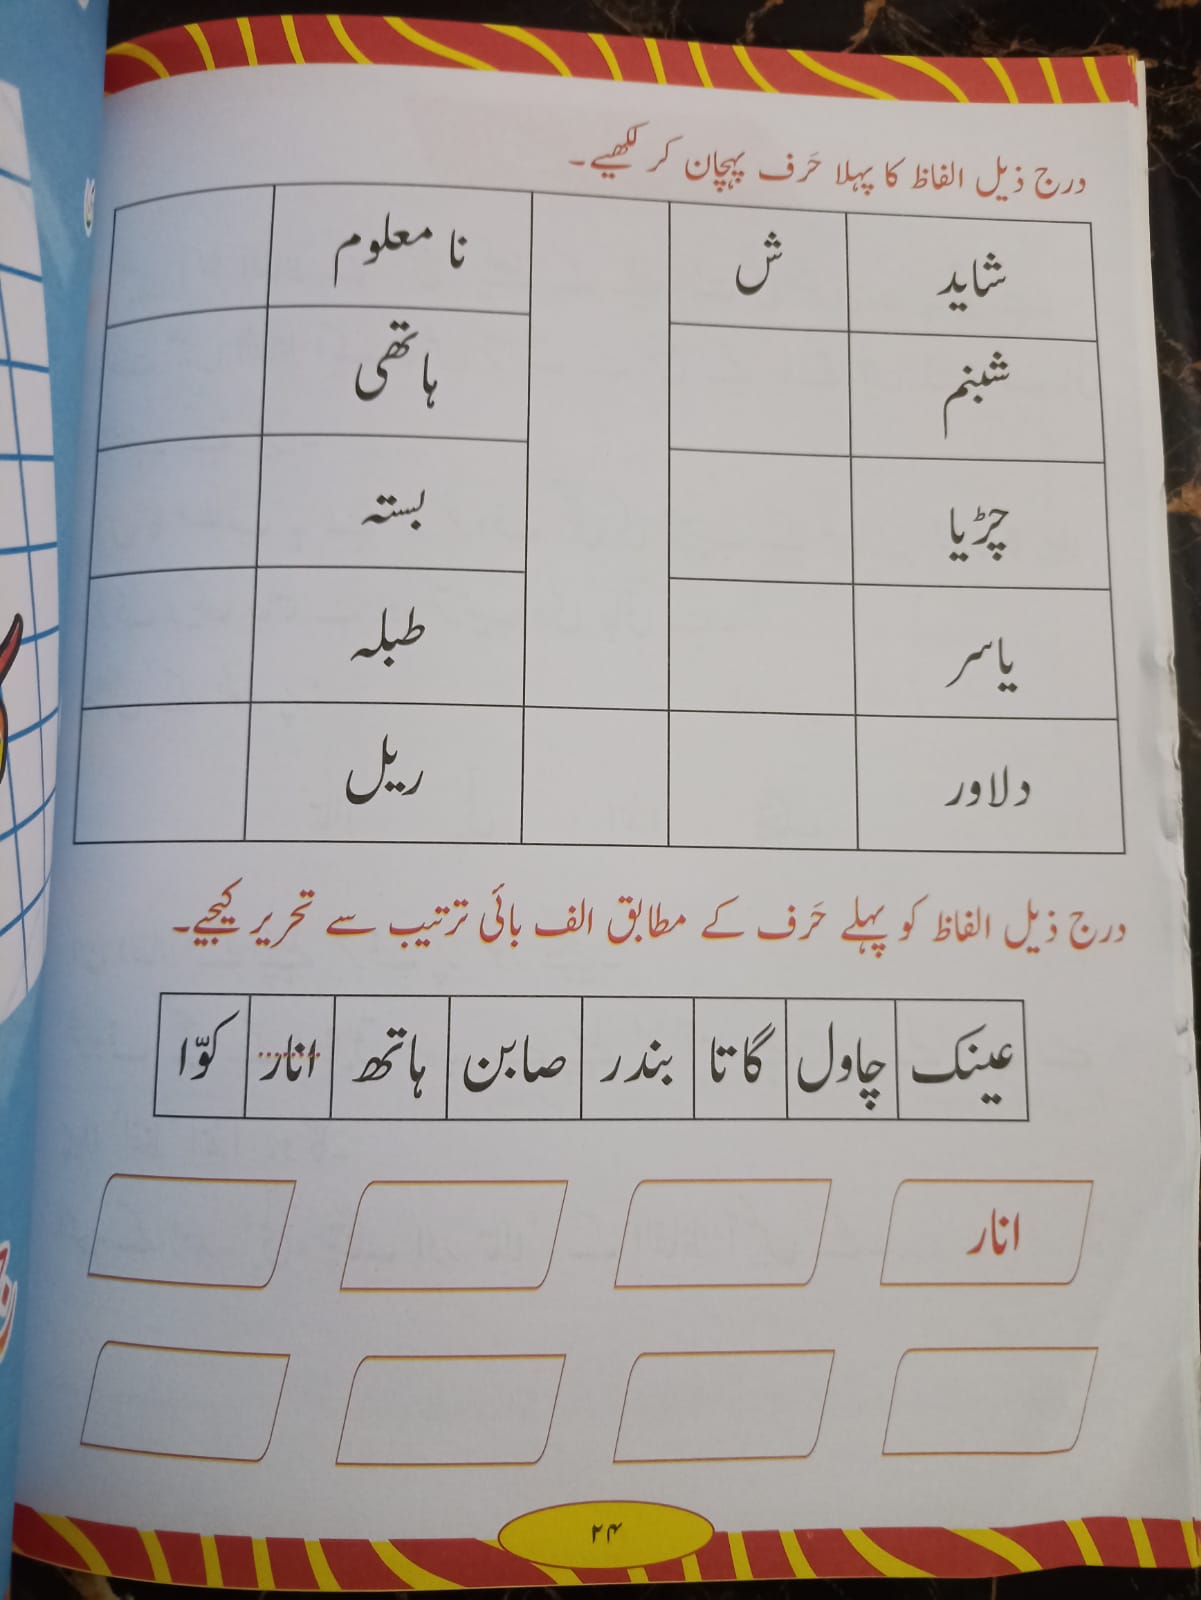 درج ذیل الفاظ کا پہلا حَرف پہچان کر لکھیے۔
شاید ش نا معلوم
شبنم ہاتھی
چڑیا بستہ
یاسر طبلہ
دلاور ریل
درج ذیل الفاظ کو پہلے حَرف کے مطابق الف بائی ترتیب سے تحریر کیجیے۔
عینک چاول گاتا بندر صابن ہاتھ انار کوّا
انار
۲۴